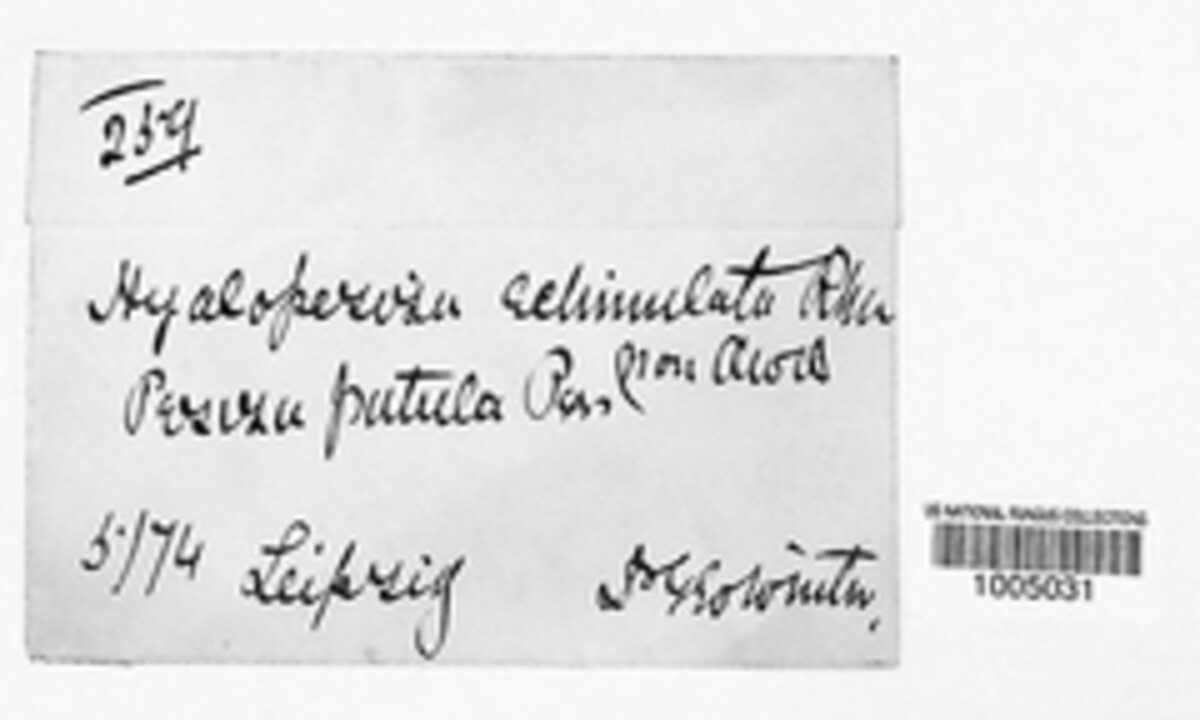 259
Hyalopeziza echinulata Rhm
Peziza patula Pers. (non Awd
5/74 Leipzig Dr G Winter,
US NATIONAL FUNGUS COLLECTIONS
1005031